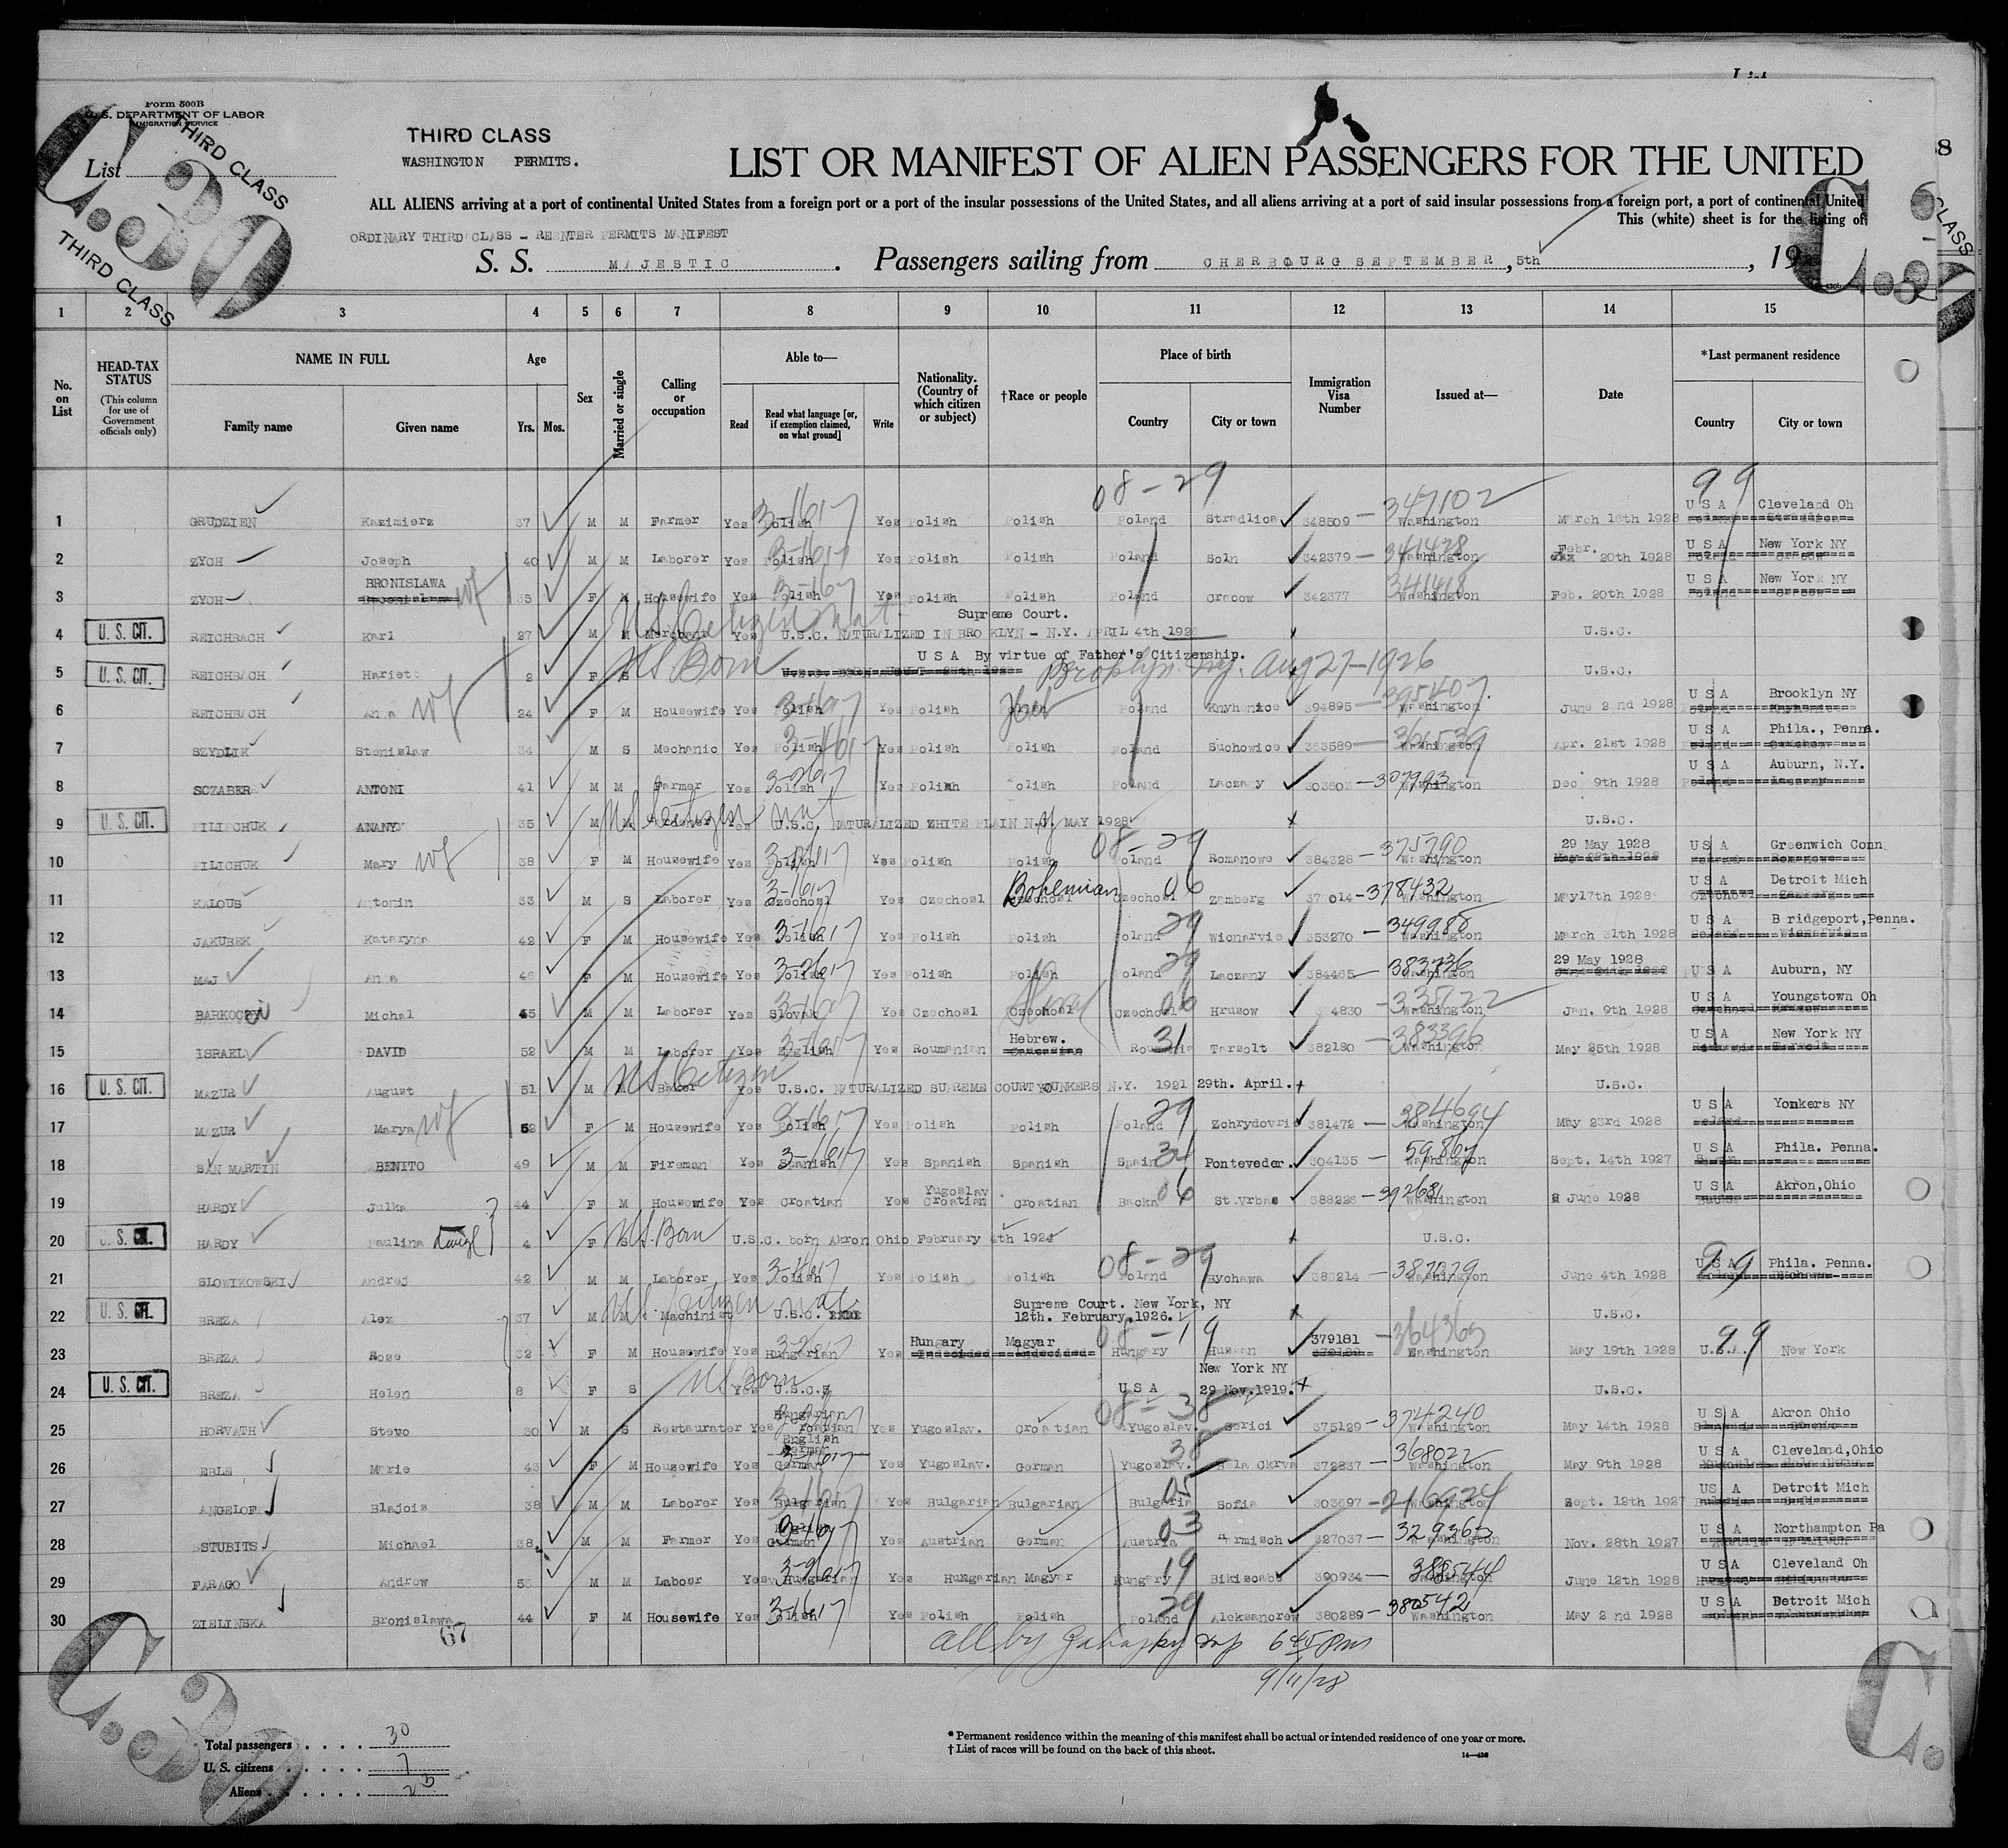 Form 500B
U. S. DEPARTMENT OF LABOR
IMMIGRATION SERVICE
List
THIRD CLASS
THIRD CLASS
C. 30
THIRD CLASS
WASHINGTON PERMITS.
LIST OR MANIFEST OF ALIEN PASSENGERS FOR THE UNITED
ALL ALIENS arriving at a port of continental United States from a foreign port or a port of the insular possessions of the United States, and all aliens arriving at a port of said insular possessions from a foreign port, a port of continental United
This (white) sheet is for the listing of
ORDINARY THIRD CLASS - REENTER PERMITS MANIFEST
S. S. MAJESTIC. Passengers sailing from CHERBOURG SEPTEMBER, 5th, 19
1 2 3 4 5 6 7 8 9 10 11 12 13 14 15
No. on List
HEAD-TAX STATUS (This column for use of Government officials only)
NAME IN FULL Family name Given name
Age Yrs. Mos.
Sex
Married or single
Calling or occupation
Able to— Read Read what language [or, if exemption claimed, on what ground] Write
Nationality. (Country of which citizen or subject)
†Race or people
Place of birth Country City or town
Immigration Visa Number
Issued at—
Date
*Last permanent residence Country City or town
08-29 99
1 GRUDZIEN Kazimierz 37 M M Farmer Yes Polish 3-1617 Yes Polish Polish Poland Stradlica 348509 - 347102 Washington March 16th 1928 U S A Cleveland Oh
2 ZYCH Joseph 40 M M Laborer Yes Polish 3-1617 Yes Polish Polish Poland Soln 342379 - 341428 Washington Febr. 20th 1928 U S A New York NY
3 ZYCH BRONISLAWA wf 35 F M Housewife Yes Polish 3-167 Yes Polish Polish Poland Cracow 342377 341418 Washington Feb. 20th 1928 U S A New York NY
4 U. S. CIT. REICHBACH Karl 27 M M Merchant Yes US Citizen nat Supreme Court. U.S.C. NATURALIZED IN BROOKLYN - N.Y. APRIL 4th 1928 x U.S.C.
5 U. S. CIT. REICHBACH Hariett 2 F S US Born U S A By virtue of Father's Citizenship. Brooklyn. Ny. Aug 27-1926 U.S.C.
6 REICHBACH Anna wf 24 F M Housewife Yes Polish 3-1617 Yes Polish Poland Knyhunice 394895 - 395407 Washington June 2nd 1928 U S A Brooklyn NY
7 SZYDLIK Stenislaw 34 M S Mechanic Yes Polish 3-1617 Yes Polish Polish Poland Suchowice 363589 - 366539 Washington Apr. 21st 1928 U S A Phila., Penna.
8 SCZABERA ANTONI 41 M M Farmer Yes Polish 3-2617 Yes Polish Polish Poland Laczany 303603 - 307993 Washington Dec 9th 1928 U S A Auburn, N.Y.
9 U. S. CIT. FILIPCHUK ANANY 35 M M Gardener Yes US Citizen nat U.S.C. NATURALIZED WHITE PLAIN N.Y. MAY 1928 x U.S.C.
10 FILICHUK Mary wf 38 F M Housewife Yes Polish 3-2617 Yes Polish Polish 08-29 Poland Romanowe 384328 - 375790 Washington 29 May 1928 U S A Greenwich Conn
11 KALOUS Antonin 33 M S Laborer Yes Czechosl 3-1617 Yes Czechosl Bohemian Czechosl 06 Zamberg 37 014 - 378432 Washington May17th 1928 U S A Detroit Mich
12 JAKUBEK Kataryna 42 F M Housewife Yes Polish 3-1617 Yes Polish Polish Poland 29 Wionarvie 353270 - 349988 Washington March 31th 1928 U S A Bridgeport,Penna.
13 MAJ Anna 46 F M Housewife Yes Polish 3-2617 Yes Polish Polish Poland 29 Laczany 384465 - 383736 Washington 29 May 1928 U S A Auburn, NY
14 BARKOCZI Michal 45 M M Laborer Yes Slovak 3-1617 Yes Czechosl Slovak Czechosl 06 Hrusow 4830 - 335122 Washington Jan. 9th 1928 U S A Youngstown Oh
15 ISRAEL DAVID 52 M M Laborer Yes English 3-1617 Yes Roumanian Hebrew. Roumania 31 Tarsolt 382180 - 383396 Washington May 25th 1928 U S A New York NY
16 U. S. CIT. MAZUR August 51 M M Baker Yes US Citizen U.S.C. NATURALIZED SUPREME COURT YOUNKERS N.Y. 1921 29th. April. x U.S.C.
17 MAZUR Marya wf 52 F M Housewife Yes Polish 3-1617 Yes Polish Polish Poland 29 Zchrydovri 381472 - 384694 Washington May 23rd 1928 U S A Yonkers NY
18 SAN MARTIN BENITO 49 M M Fireman Yes Spanish 3-1617 Yes Spanish Spanish Spain 34 Ponteveder. 304135 - 59867 Washington Sept. 14th 1927 U S A Phila. Penna.
19 HARDY Julka 44 F M Housewife Yes Croatian Yes Yugoslav Croatian Croatian Backa 06 St.Vrbas 388226 - 392681 Washington 2 June 1928 U S A Akron,Ohio
20 U. S. CIT. HARDY Paulina daugh 4 F S US. Born U.S.C. born Akron Ohio February 4th 1924 x U.S.C.
21 SLOWIKOWSKI Andrej 42 M M Laborer Yes Polish 3-1617 Yes Polish Polish 08-29 Poland Bychawa 383214 - 387879 Washington June 4th 1928 U S A 99 Phila. Penna.
22 U. S. CIT. BREZA Alex 37 M M Machinist US Citizen nat U.S.C. Supreme Court. New York, NY 12th. February,1926. x U.S.C.
23 BREZA Rose 32 F M Housewife Yes Hungarian Yes Hungary Magyar 08-19 Hungary Hussan 379181 - 364363 Washington May 19th 1928 U.S.A. 99 New York
24 U. S. CIT. BREZA Helen 8 F S US Born Yes U.S.C. U S A New York NY 29 Nov.1919. x U.S.C.
25 HORVATH Stevo 30 M S Restaurater Yes Hungarian Croatian English German Yes Yugoslav. Croatian 08-38 Yugoslav. Sorici 375129 - 374240 Washington May 14th 1928 U S A Akron Ohio
26 EBLE Marie 43 F M Housewife Yes German 3-1617 Yes Yugoslav. German Yugoslav. 38 Bela Ckrva 372837 - 368022 Washington May 9th 1928 U S A Cleveland,Ohio
27 ANGELOF Blajois 38 M M Laborer Yes Bulgarian 3-1617 Yes Bulgarian Bulgarian Bulgaria 05 Sofia 303697 - 216924 Washington Sept. 12th 1927 US A Detroit Mich
28 STUBITS Michael 38 M M Farmer Yes English German 3-1617 Yes Austrian German Austria 03 Urmisch 327037 - 329363 Washington Nov. 28th 1927 U S A Northampton Pa
29 FARAGO Andrew 53 M M Laboer Yes Hungarian 3-2617 Yes Hungarian Magyar Hungary 19 Bikiscabs 390934 - 388544 Washington June 12th 1928 U S A Cleveland Oh
30 ZIELINSKA Bronislawa 44 F M Housewife Yes Polish 3-1617 Yes Polish Polish Poland 29 Aleksancrew 380289 - 380542 Washington May 2nd 1928 U S A Detroit Mich
67
all by 6 45 pm
9/11/28
Total passengers . . . . . 30
U. S. citizens . . . . . 7
Aliens . . . . . . 23
* Permanent residence within the meaning of this manifest shall be actual or intended residence of one year or more.
† List of races will be found on the back of this sheet.
14—430